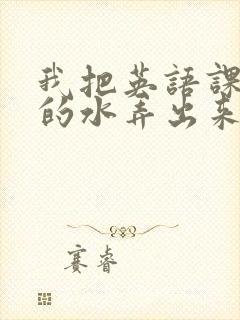 我把英語課
的水弄出來
賽睿